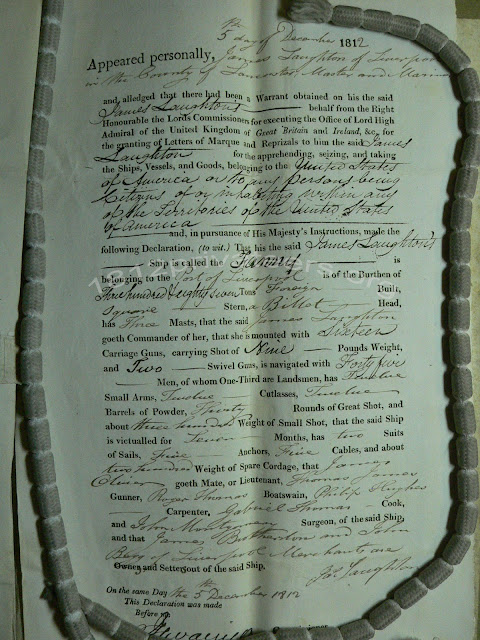 5th day of December 1812
Appeared personally, James Laughton of Liverpool
in the County of Lancaster Master and Mariner
and, alledged that there had been a Warrant obtained on his the said
James Laughton's behalf from the Right
Honourable the Lords Commissioners for executing the Office of Lord High
Admiral of the United Kingdom of Great Britain and Ireland, &c, for
the granting of Letters of Marque and Reprizals to him the said James
Laughton for the apprehending, seizing, and taking
the Ships, Vessels, and Goods, belonging to the United States
of America or to any persons being
Citizens of or inhabiting within any
of the Territories of the United States
of America
and, in pursuance of His Majesty's Instructions, made the
following Declaration, (to wit.) That his the said James Laughton's
Ship is called the Fanny is
belonging to the Port of Liverpool is of the Burthen of
Five hundred & eighty seven Tons Foreign Built,
Square Stern, a Billet Head,
has Three Masts, that the said James Laughton
goeth Commander of her, that she is mounted with Sixteen
Carriage Guns, carrying Shot of Nine Pounds Weight,
and Two Swivel Guns, is navigated with Forty five
Men, of whom One-Third are Landsmen, has Twelve
Small Arms, Twelve Cutlasses, Twelve
Barrels of Powder, Thirty Rounds of Great Shot, and
about three hundred Weight of Small Shot, that the said Ship
is victualled for Seven Months, has two Suits
of Sails, Five Anchors, Five Cables, and about
two hundred Weight of Spare Cordage, that James
Oliver goeth Mate, or Lieutenant, Thomas James
Gunner, Roger Thomas Boatswain, Philip Hughes
Carpenter, Gabriel Thomas Cook,
and John Surgeon, of the said Ship,
and that James Brotherton and John
of Liverpool Merchants are
Owners and Setters out of the said Ship,
Jas Laughton
On the same Day the 5th December 1812
This Declaration was made
Before me,